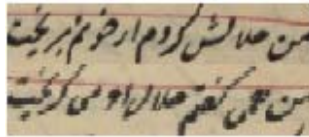 من حلالش کردم ار خونم بریخت
من همی گفتم حلال او می گریخت